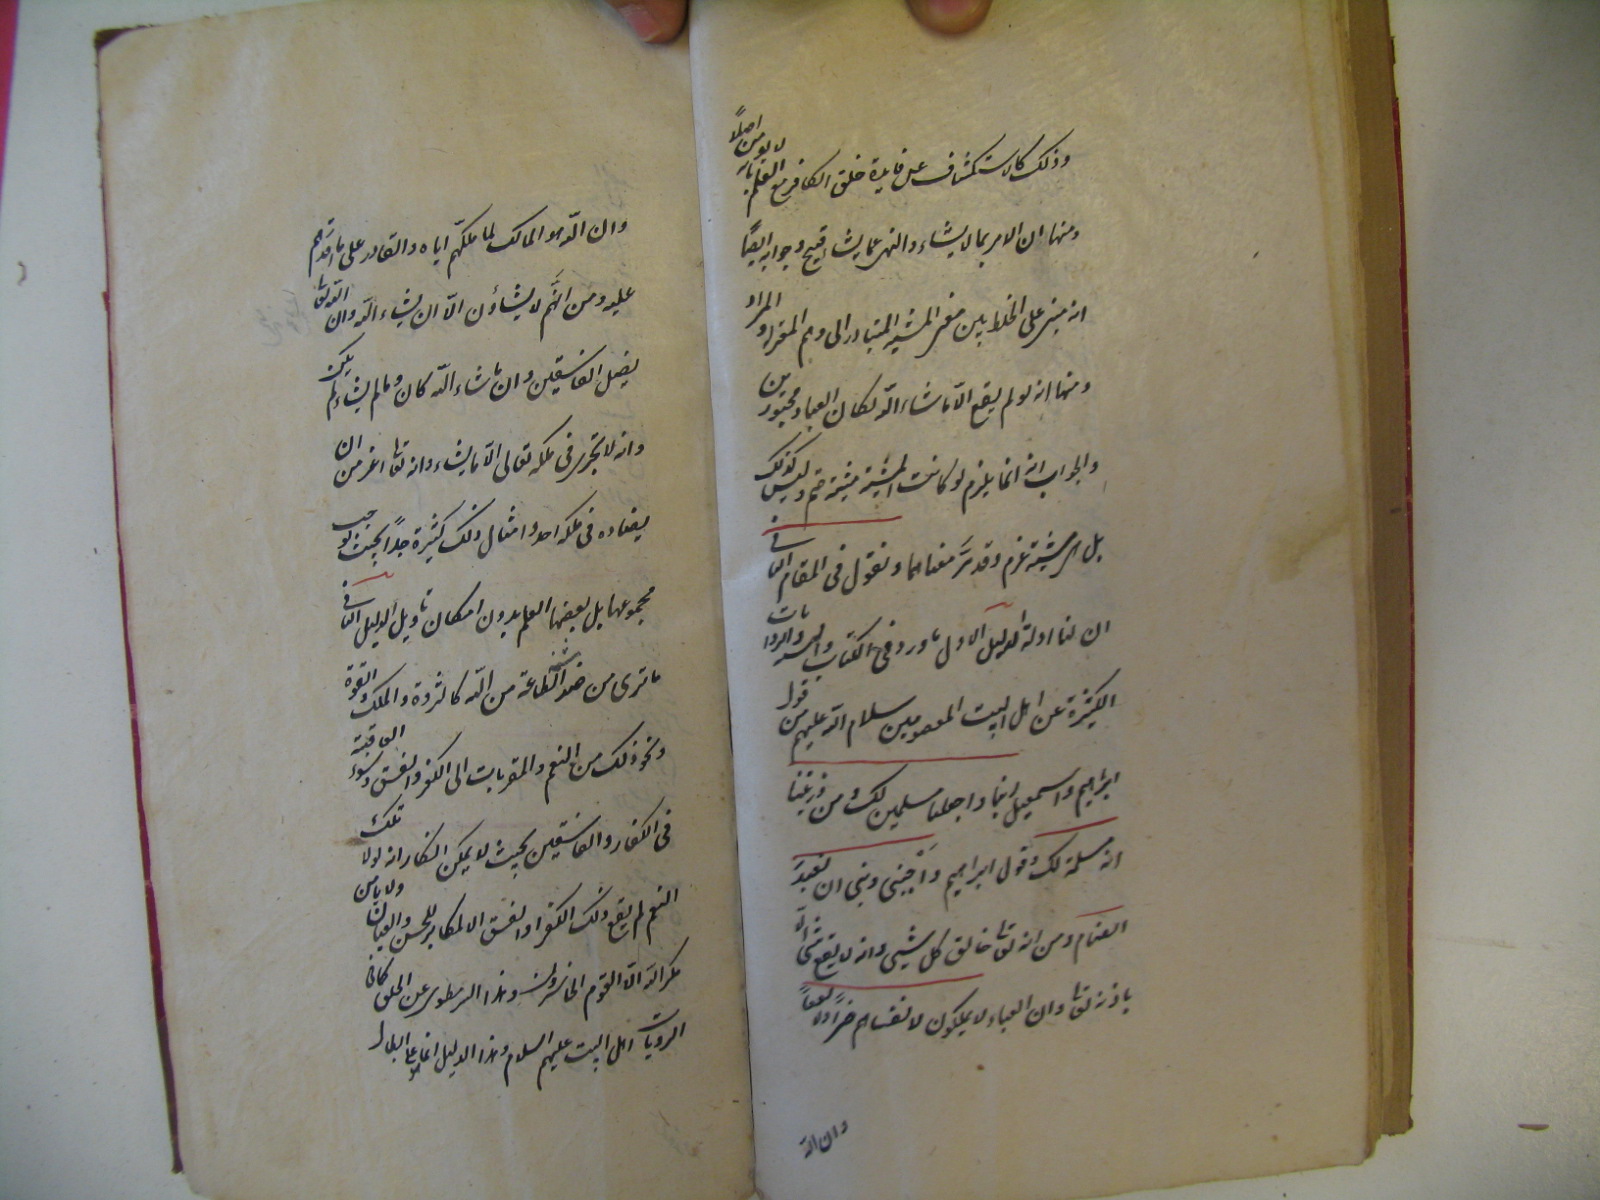 وذلك كالاستكشاف عن فايدة خلق الكافر مع العلم بانه لا يومن اصلاً
ومنها ان الامر بما لا يشاء والنهى عما يشاء قبيح وجوابه ايضاً
انه مبنى على الخلط بين معنى المشية المتبادر الى وهم المعتزلة والمراد
ومنها انه لو لم يقع الا ما شاء الله لكان العباد مجبورين
والجواب انه انما يلزم لو كانت المشية مشية حتم وليس كذلك
بل هى مشية عزم وقد مر معناهما ونقول فى المقام الثانى
ان لنا ادلة الدليل الاول ما ورد فى الكتاب والسنة والروايات
الكثيرة عن اهل البيت المعصومين سلام الله عليهم من قول
ابراهيم واسمعيل ربنا واجعلنا مسلمين لك ومن ذريتنا
امة مسلمة لك وقول ابراهيم وَاجْنبنى وبنى ان نعبدَ
الاصنام ومن انه تعا خالق كل شيئ وانه لا يقع شئ الا
باذنه تعا وان العباد لا يملكون لانفسهم ضراً ولا نفعاً
وان الله
وان الله هو المالك لما ملكهم اياه والقادر على ما اقدرهم
عليه ومن انهم لا يشاؤن الا ان يشاء الله وان الله تعا
يضل الفاسقين وان ما شاء الله كان وما لم يشاء لم يكن
وانه لا تجرى فى ملكه تعالى الا ما يشاء وانه تعا اعز من ان
يضاده فى ملكه احد وامثال ذلك كثيرة جداً بحيث يوجب
مجموعها بل بعضها العلم بدون امكان تاويل الدليل الثانى
ما ترى من ضد الطاعة من الله كالثروة والملك والقوة
ونحو ذلك من النعم والمقربات الى الكفر والفسق وسوء العاقبة
فى الكفار والفاسقين بحيث لا يمكن انكار انه لولا تلك
النعم لم يقع ذلك الكفر او الفسق الا لمكابر للحس والعيان ولا يامن
مكر الله الا القوم الخاسرون وهذا السر مطوى عن الخلق كما فى
الرويات اهل البيت عليهم السلام وهذا الدليل انما هو على ابطال